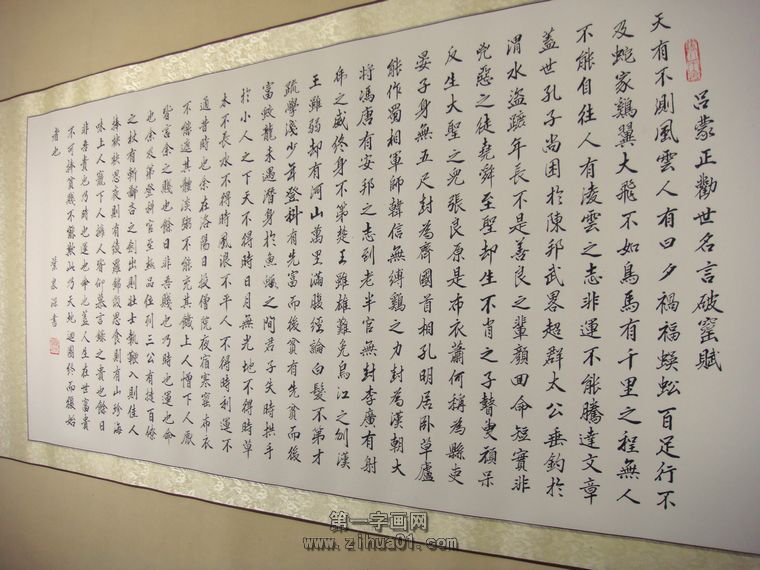 呂蒙正勸世名言破窰賦
天有不測風雲人有旦夕禍福蜈蚣百足行不
及蛇家鷄翼大飛不如鳥馬有千里之程無人
不能自往人有凌雲之志非運不能騰達文章
蓋世孔子尚困於陳邦武畧超群太公垂釣於
渭水盜蹠年長不是善良之輩顔回命短實非
兇惡之徒堯舜至聖却生不肖之子瞽叟頑呆
反生大聖之兒張良原是布衣蕭何稱為縣吏
晏子身無五尺封為齊國首相孔明居卧草廬
能作蜀相軍師韓信無縛鷄之力封為漢朝大
將馮唐有安邦之志到老半官無封李廣有射
虎之威終身不第楚王雖雄難免烏江之刎漢
王雖弱却有河山萬里滿腹經論白髮不第才
疏學淺少年登科有先富而後貧有先貧而後
富蛟龍未遇潛身於魚蠍之間君子失時拱手
於小人之下天不得時日月無光地不得時草
木不長水不得時風浪不平人不得時利運不
通昔時也余在洛陽日投僧院夜宿寒窯布衣
不能遮其體淡粥不能充其饑上人憎下人厭
皆言余之賤也餘曰非吾賤也乃時也運也命
也余及第登科官至極品位列三公有撻百僚
之杖有斬鄙吝之劍出則壯士執鞭入則佳人
捧袂思衣則有綾羅錦緞思食則有山珍海
味上人寵下人擁人皆仰慕言餘之貴也餘曰
非吾貴也乃時也運也命也蓋人生在世富貴
不可捧貧賤不能欺此乃天地迴圈終而復始
者也
書
第一字画网
www.zihua01.com